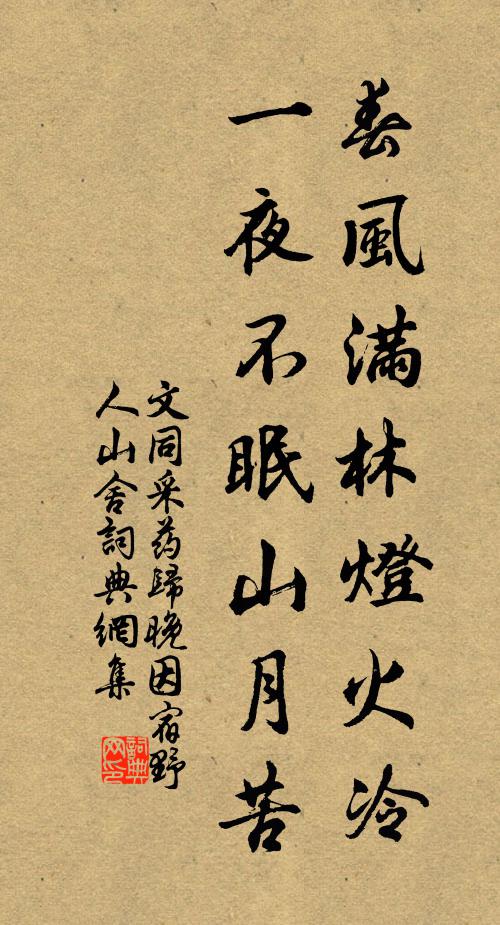 春風滿林燈火冷
一夜不眠山月苦
文同采药歸晚因宿野
人山舍詞典網集
詞典
网印